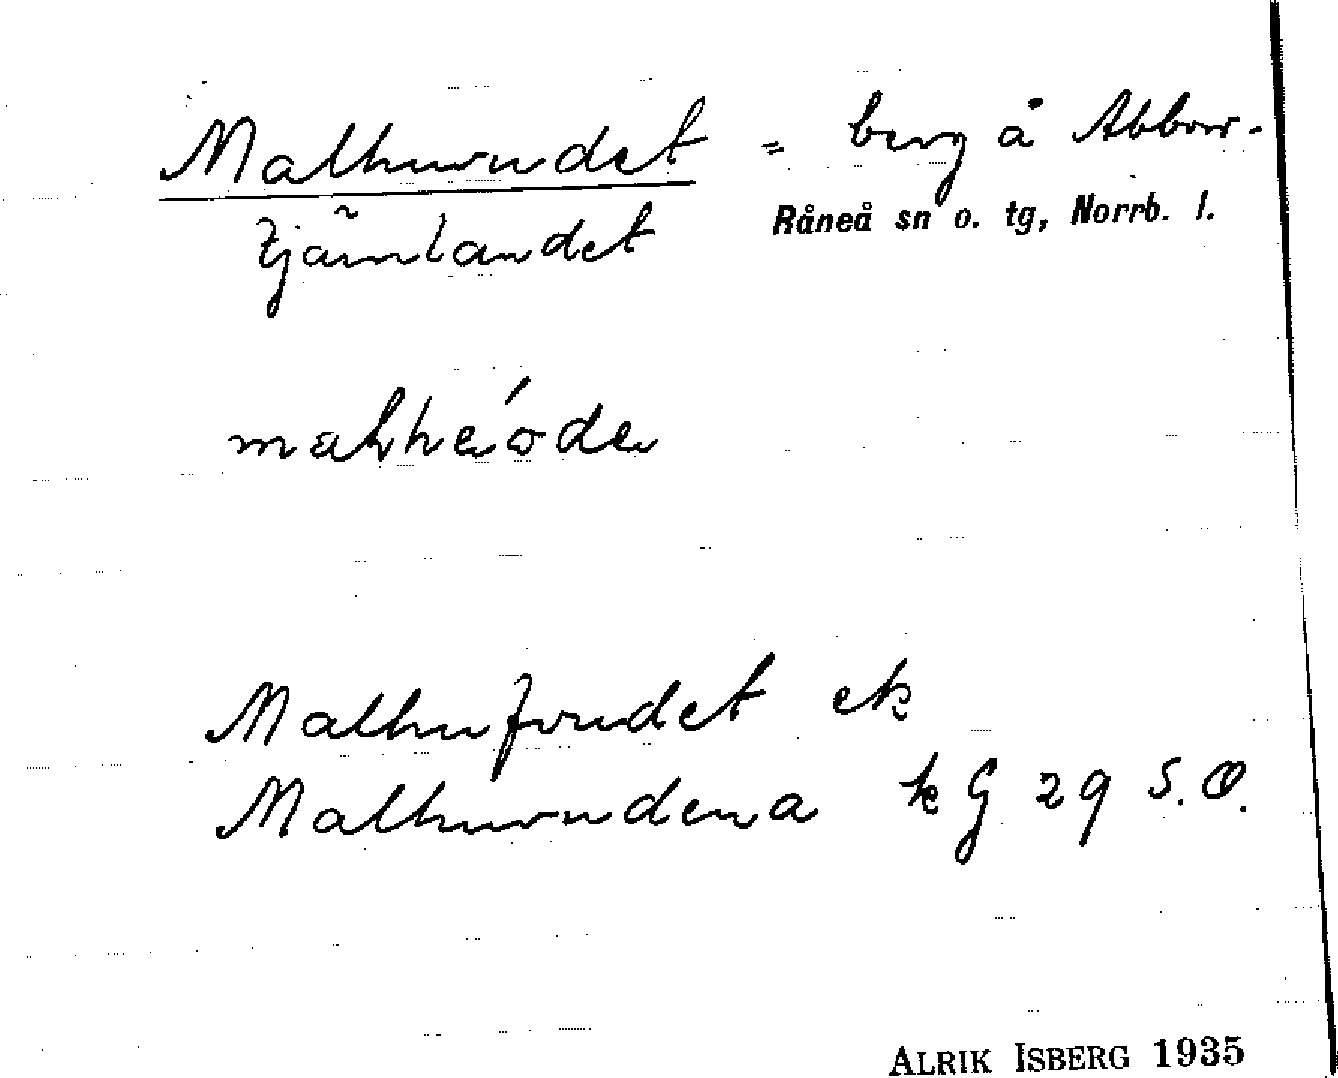 Malhuvudet = berg å Abborr-
tjärnlandet Råneå sn o. tg, Norrb. l.
Malhufvudet ek
Malhuvudena kG 29 S.O.
ALRIK ISBERG 1935